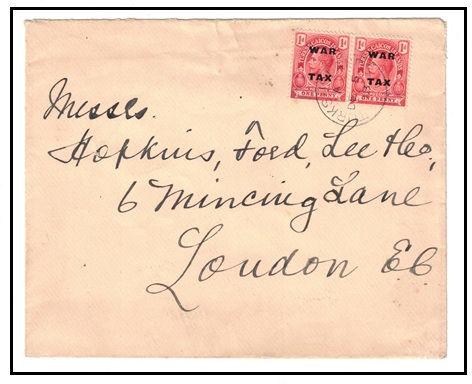 1d 1d 1d 1d
WAR WAR
TAX TAX
ONE PENNY ONE PENNY
Messrs.
Hopkins, Ford, Lee & Co,
6 Mincing Lane
London EC